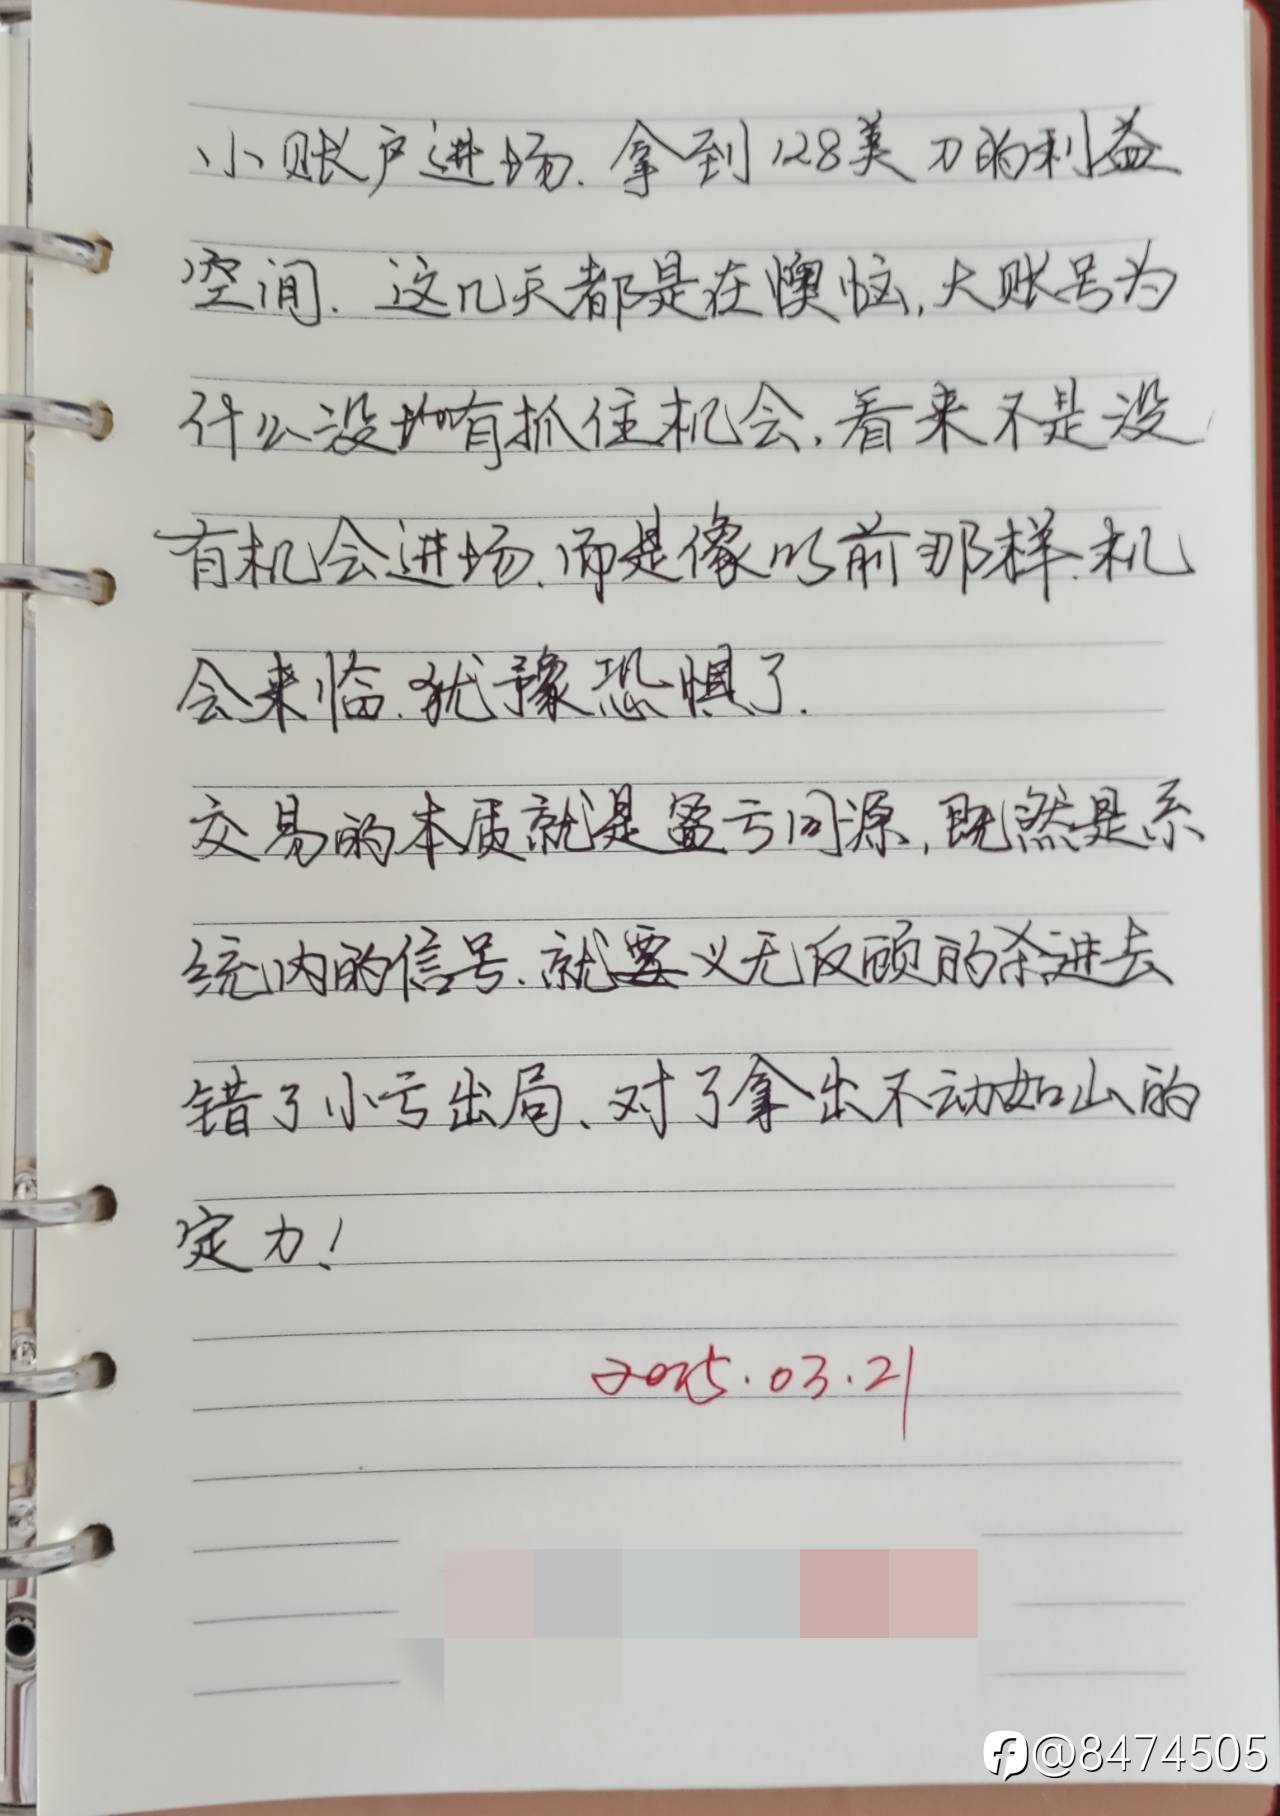 小账户进场.拿到128美刀的利益
空间.这几天都是在懊恼,大账号为
什么没有抓住机会,看来不是没
有机会进场.而是像以前那样.机
会来临.犹豫恐惧了.
交易的本质就是盈亏同源,既然是系
统内的信号.就要义无反顾的杀进去
错了小亏出局、对了拿出不动如山的
定力!
2025.03.21
@8474505